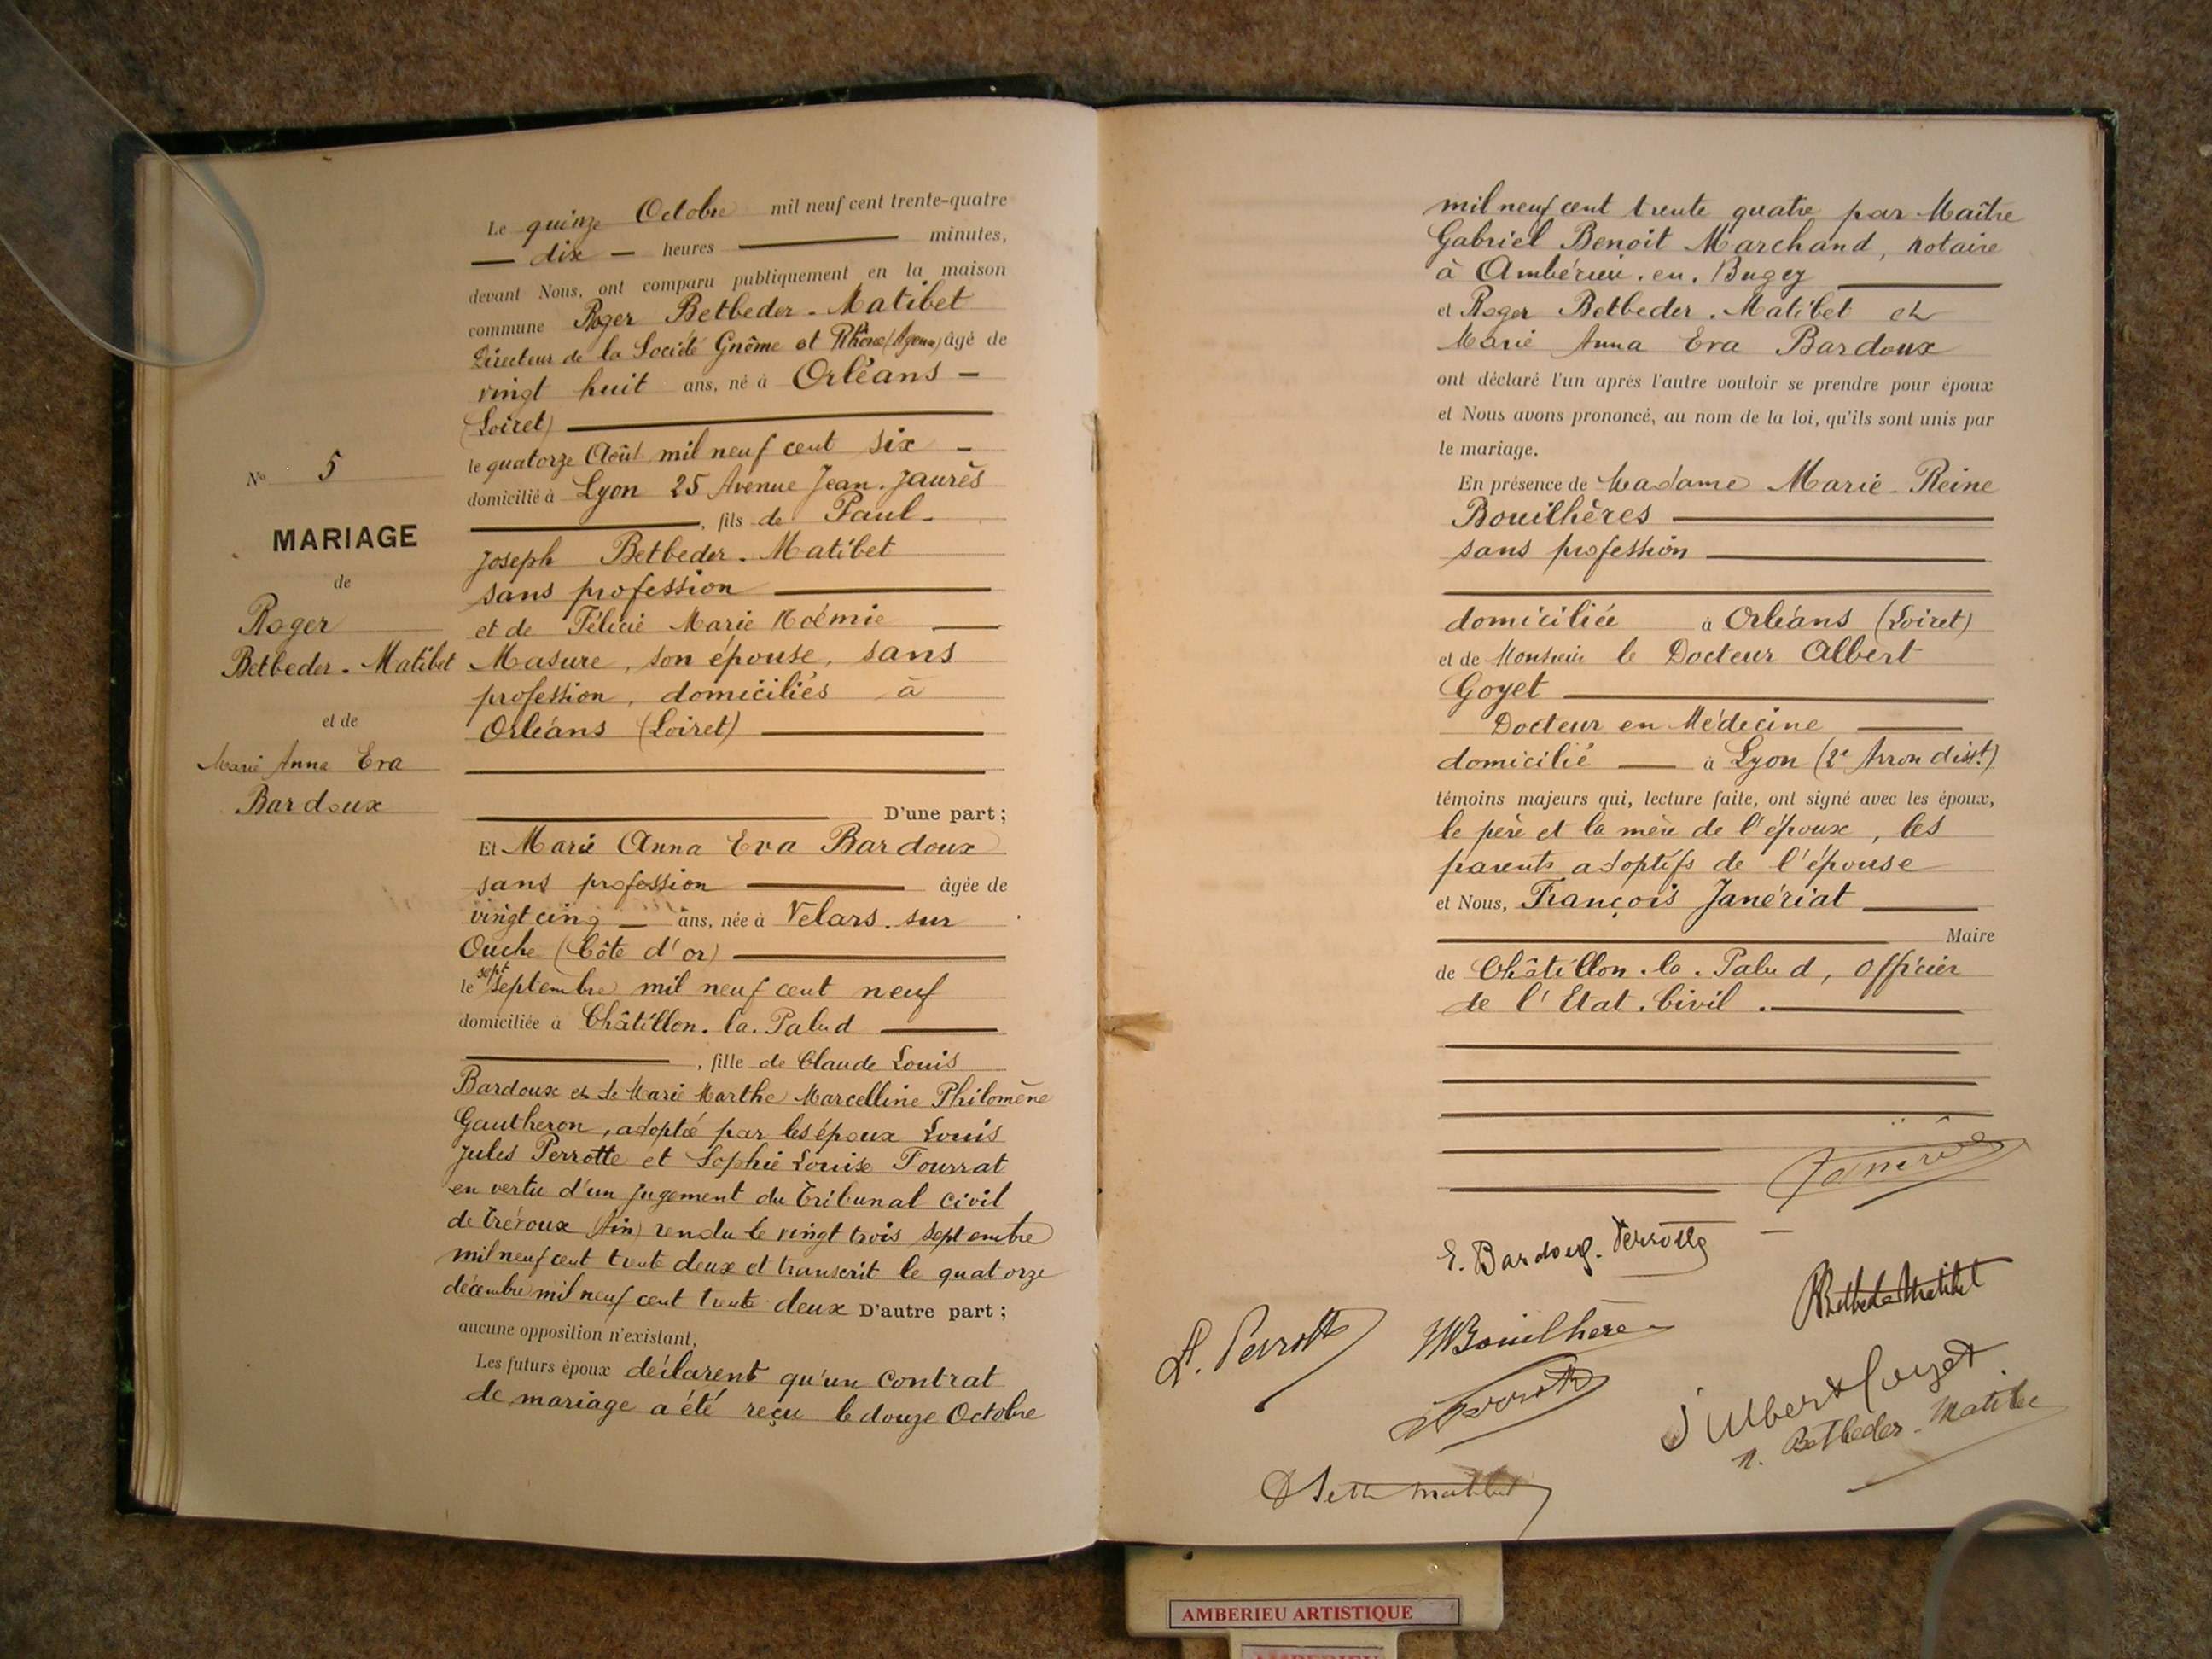 N° 5
MARIAGE
de
Roger
Betbeder-Matibet
et de
Marie Anna Eva
Bardoux
Le quinze Octobre mil neuf cent trente-quatre
— dix — heures — minutes,
devant Nous, ont comparu publiquement en la maison
commune Roger Betbeder-Matibet
Directeur de la Société Gnôme et Rhône (Agence) âgé de
vingt huit ans, né à Orléans —
(Loiret)
le quatorze Août mil neuf cent six —
domicilié à Lyon 25 Avenue Jean-Jaurès
, fils de Paul-
Joseph Betbeder-Matibet
sans profession
et de Félicie Marie Noémie
Masure, son épouse, sans
profession, domiciliés à
Orléans (Loiret)
D'une part;
Et Marie Anna Eva Bardoux
sans profession âgée de
vingt cinq — ans, née à Velars-sur
Ouche (Côte d'or)
le sept septembre mil neuf cent neuf
domiciliée à Châtillon-la-Palud
, fille de Claude Louis
Bardoux et de Marie Marthe Marcelline Philomène
Gautheron, adoptée par les époux Louis
Jules Perrotte et Sophie Louise Fourrat
en vertu d'un jugement du Tribunal civil
de Trévoux (Ain) rendu le vingt trois septembre
mil neuf cent trente deux et transcrit le quatorze
décembre mil neuf cent trente deux D'autre part;
aucune opposition n'existant,
Les futurs époux déclarent qu'un contrat
de mariage a été reçu le douze Octobre
mil neuf cent trente quatre par Maître
Gabriel Benoit Marchand, notaire
à Ambérieu-en-Bugey
et Roger Betbeder-Matibet et
Marie Anna Eva Bardoux
ont déclaré l'un après l'autre vouloir se prendre pour époux
et Nous avons prononcé, au nom de la loi, qu'ils sont unis par
le mariage.
En présence de Madame Marie-Reine
Bouilhères
sans profession
domiciliée à Orléans (Loiret)
et de Monsieur le Docteur Albert
Goyet
Docteur en Médecine
domicilié — à Lyon (2e Arrondisst.)
témoins majeurs qui, lecture faite, ont signé avec les époux,
le père et la mère de l'époux, les
parents adoptifs de l'épouse
et Nous, François Janériat
Maire
de Châtillon-la-Palud, Officier
de l'Etat-Civil.
E. Bardoux-Perrotte
L. Perrotte
Albert Goyet
n. Betbeder-Matibet
AMBERIEU ARTISTIQUE